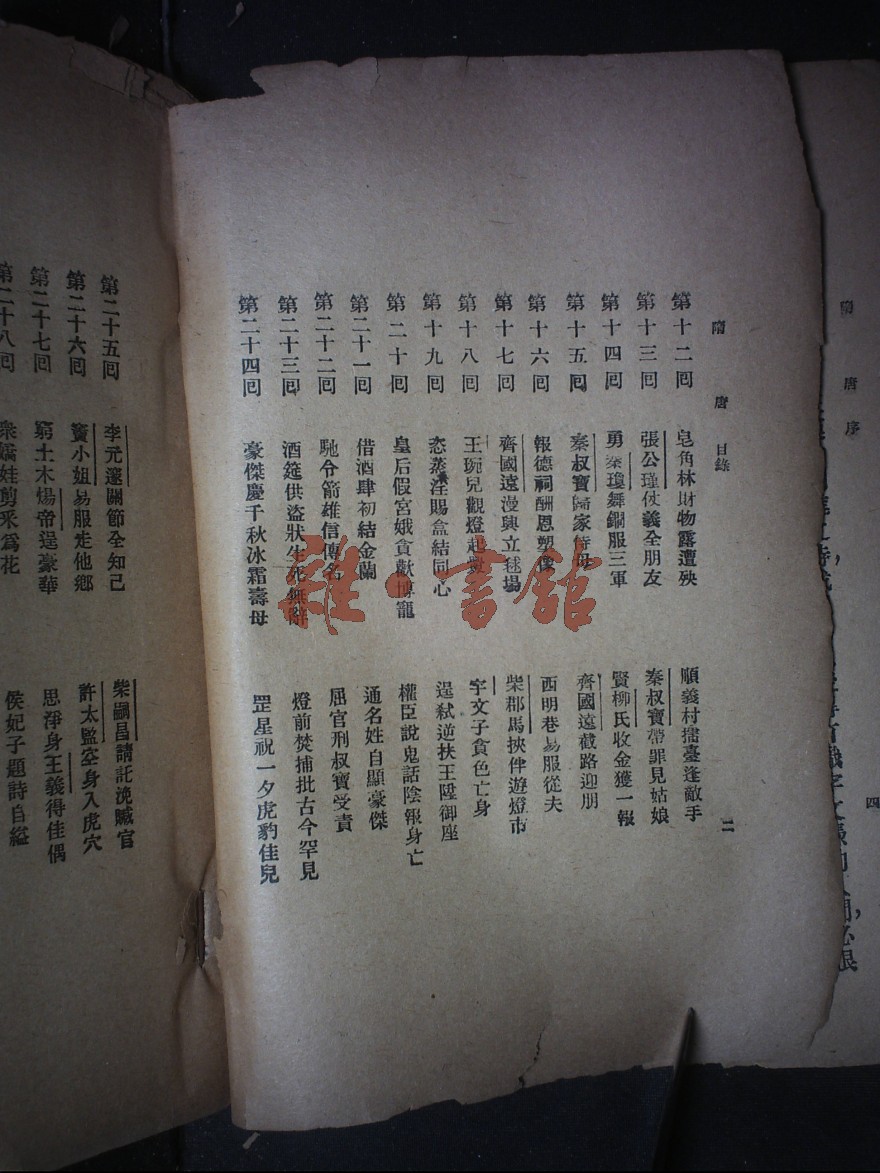 隋唐序
四
隋唐 目錄
二
第十二回 皂角林財物露遭殃 順義村擂臺逢敵手
第十三回 張公瑾仗義全朋友 秦叔寶帶罪見姑娘
第十四回 勇秦瓊舞鐧服三軍 賢柳氏收金獲一報
第十五回 秦叔寶歸家侍母 齊國遠截路迎朋
第十六回 報德祠酬恩塑像 西明巷易服從夫
第十七回 齊國遠漫興立毬場 柴郡馬挾伴遊燈市
第十八回 王琬兒觀燈起釁 宇文子貪色亡身
第十九回 恣蒸淫賜盒結同心 逞弒逆扶王陞御座
第二十回 皇后假宮娥貪歡博寵 權臣說鬼話陰報身亡
第二十一回 借酒肆初結金蘭 通名姓自顯豪傑
第二十二回 馳令箭雄信傳名 屈官刑叔寶受責
第二十三回 酒筵供盜狀生死無辭 燈前焚捕批古今罕見
第二十四回 豪傑慶千秋冰霜壽母 罡星祝一夕虎豹佳兒
第二十五回 李元邃關節全知己 柴嗣昌請託浼贓官
第二十六回 竇小姐易服走他鄉 許太監空身入虎穴
第二十七回 窮土木煬帝逞豪華 思淨身王義得佳偶
第二十八回 衆嬌娃剪綵爲花 侯妃子題詩自縊
雜·書舘